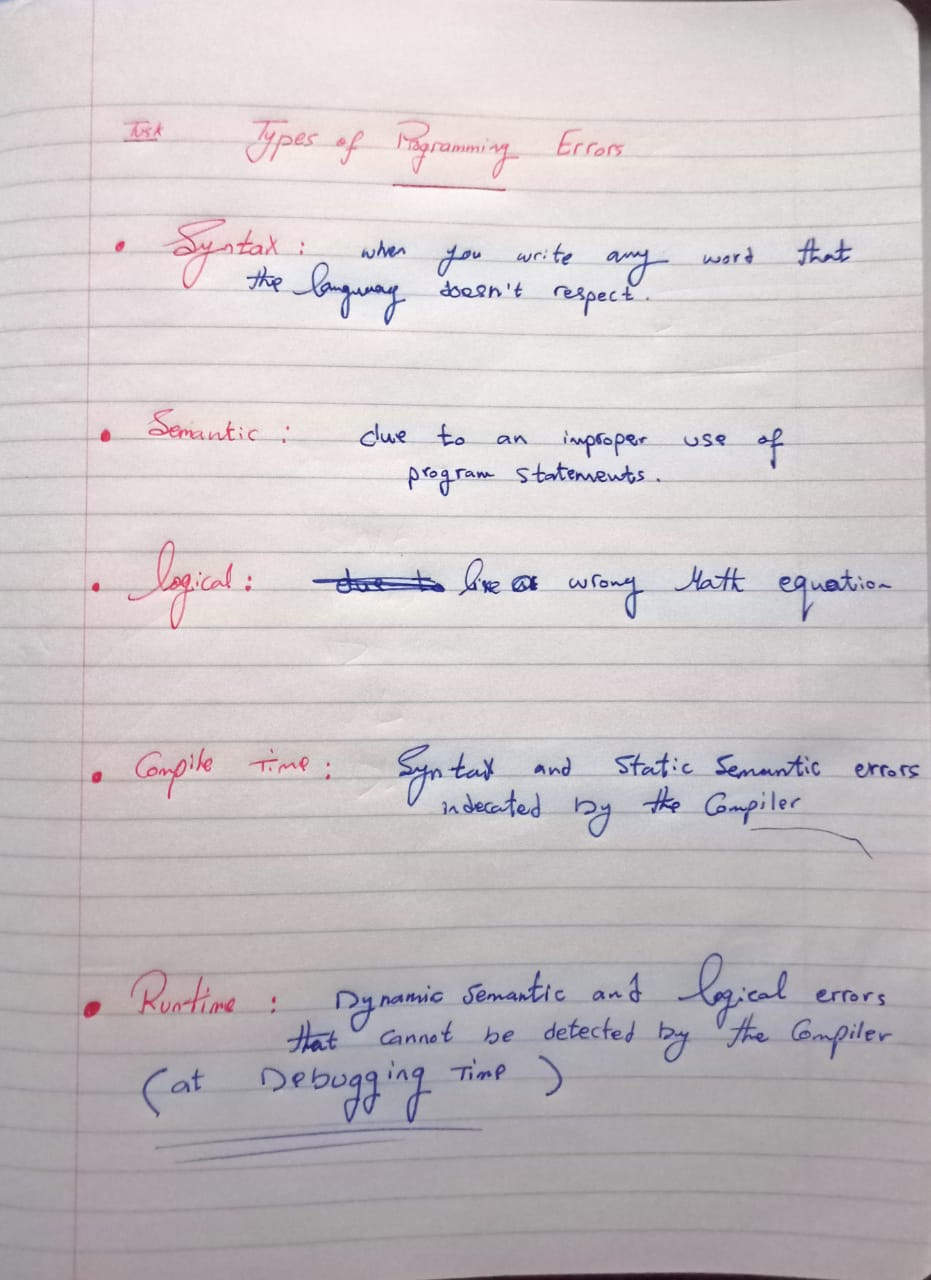 Task Types of Programming Errors
• Syntax : when you write any word that
the languag doesn't respect.
• Semantic : due to an improper use of
program statements.
• logical : due to like wrong Math equation
• Compile Time : Syntax and Static Semantic errors
indecated by the Compiler
• Runtime : Dynamic Semantic and logical errors
that cannot be detected by the Compiler
(at Debugging Time)